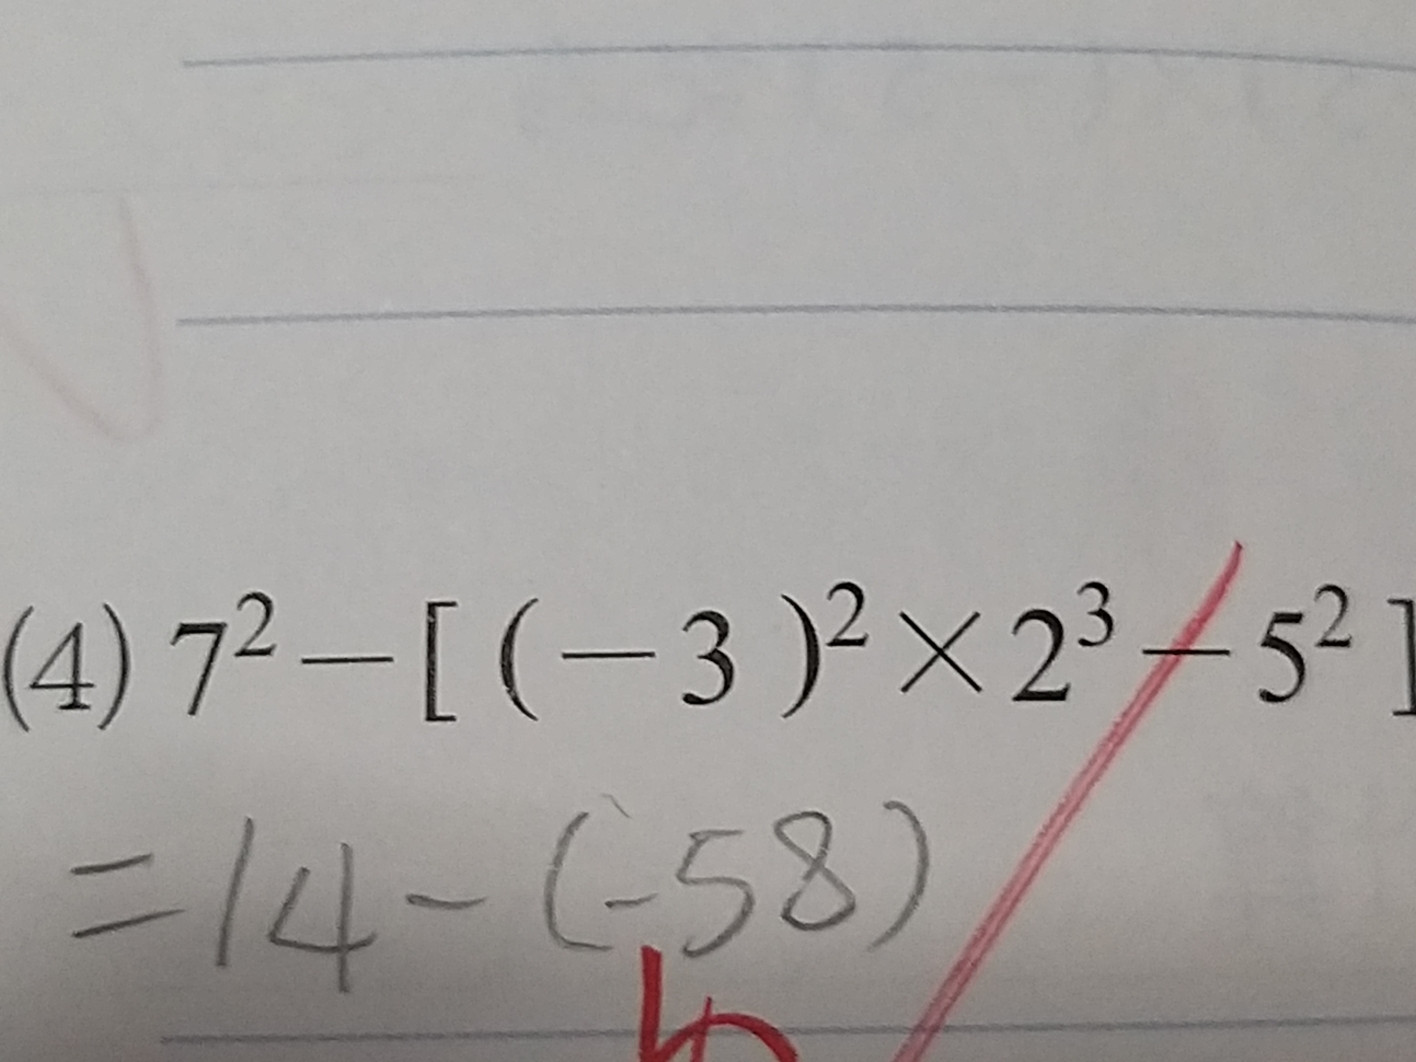 (4) 7² − [ ( − 3 )² × 2³ − 5² ]
= 14 − (−58)